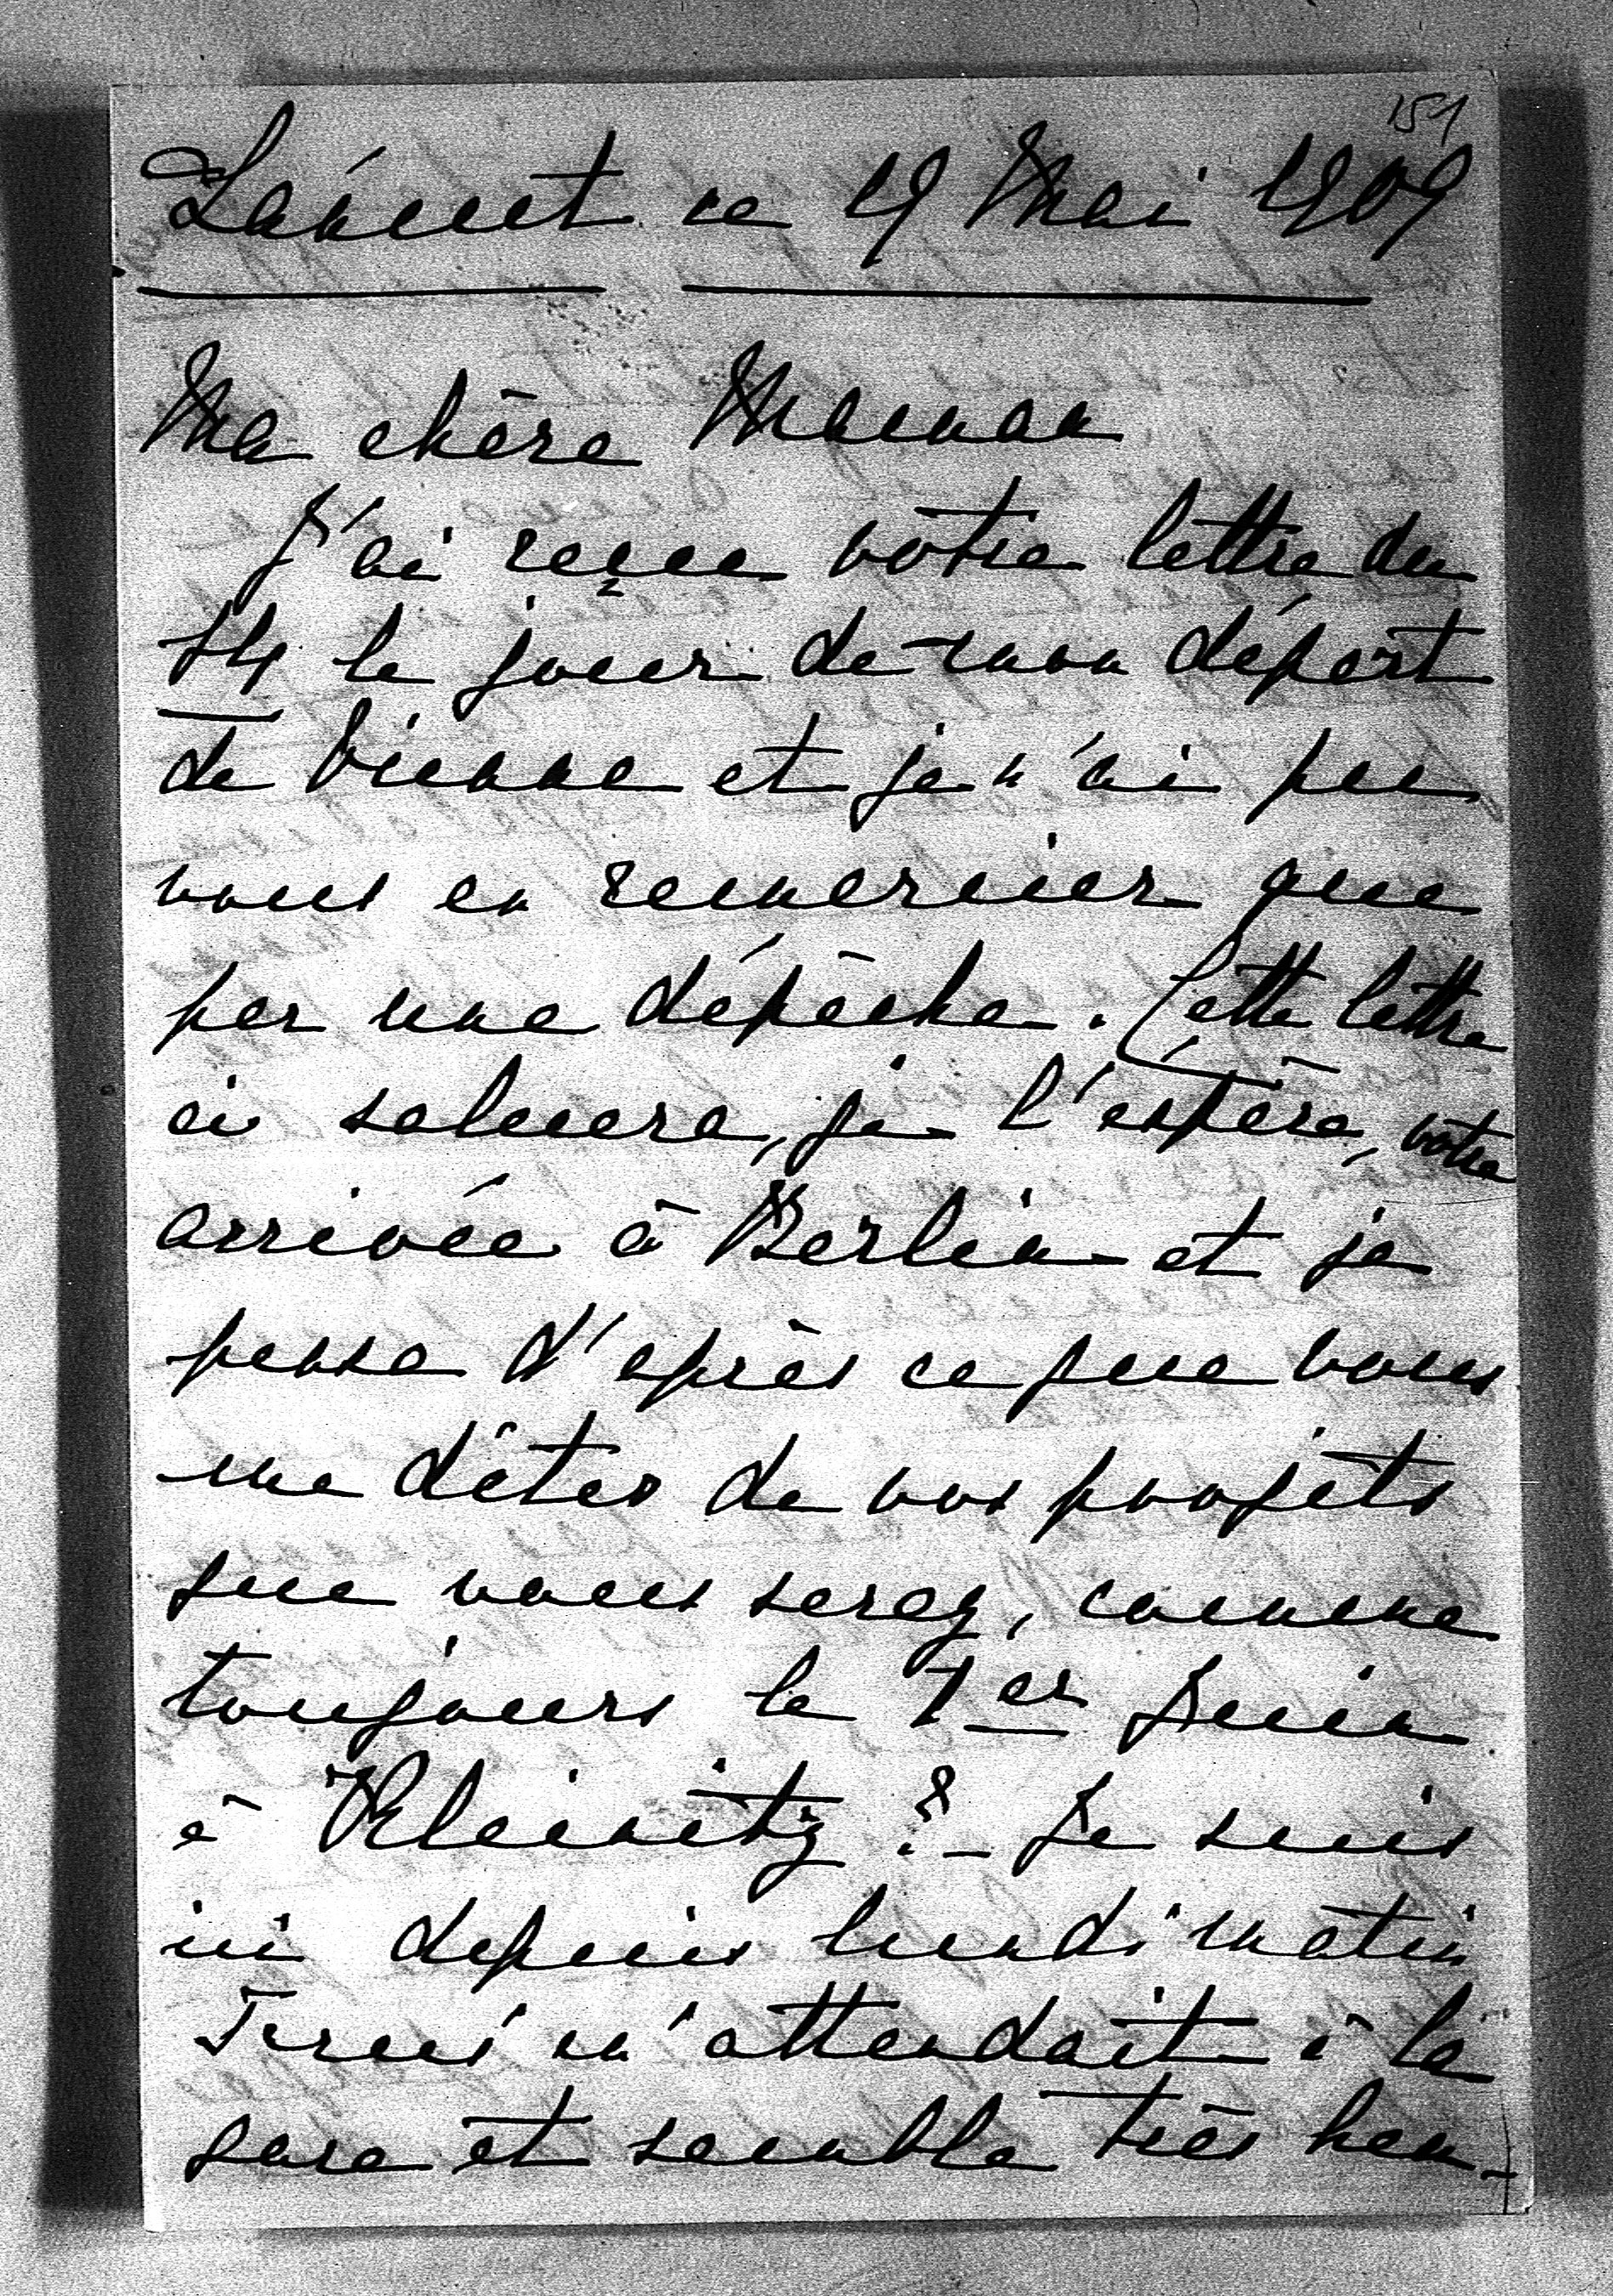 151
Łańcut ce 19 Mai 1909
Ma chère Maman
J'ai reçue votre lettre du
14 le jour de mon départ
de Vienne et je n'ai pu
vous en remercier que
par une dépêche. Cette lettre
ci saluera, je l'espère, votre
arrivée à Berlin et je
pense d'après ce que vous
me dîtes de vos projets
que vous serez, comme
toujours le 1er Juin
à Kleinitz ?_ Je suis
ici depuis lundi matin
m'attendait à la
gare et semble très heu-